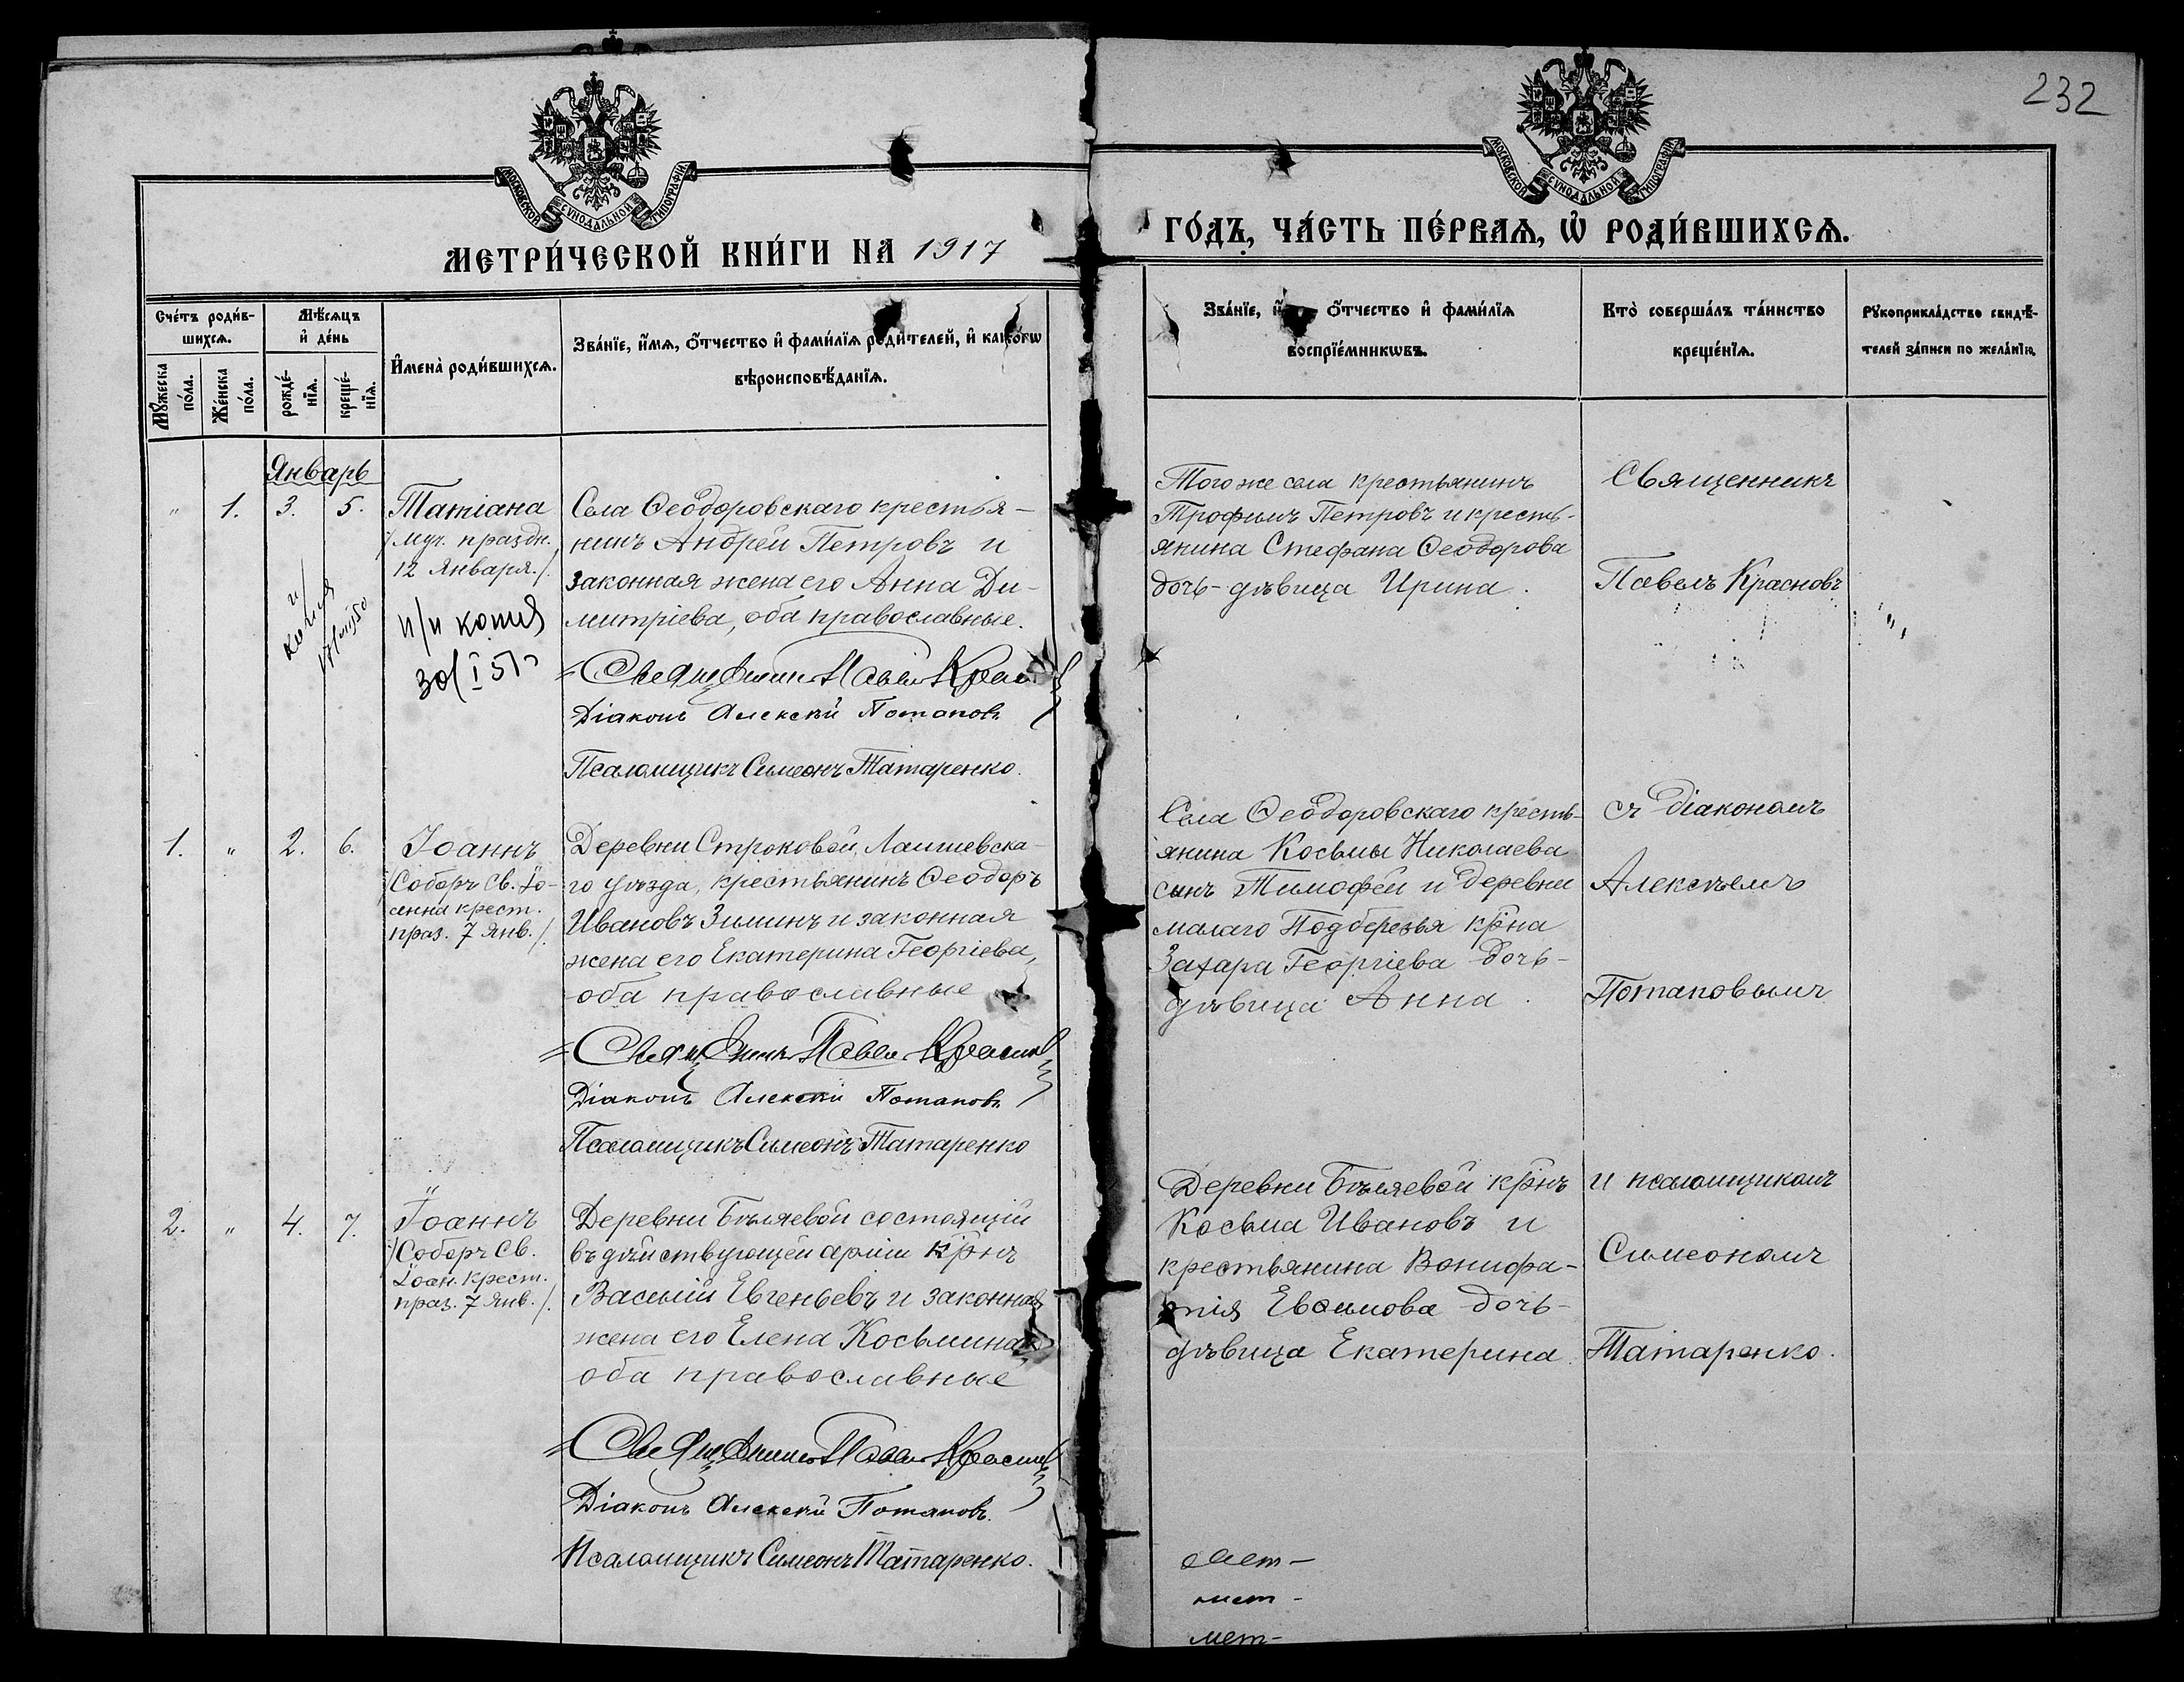 232
МОСКОВСКОЙ СУНОДАЛЬНОЙ ТИПОГРАФІИ
МОСКОВСКОЙ СУНОДАЛЬНОЙ ТИПОГРАФІИ
МЕТРИ́ЧЕСКОЙ КНИ́ГИ НА 1917
ГО́ДЪ, ЧА́СТЬ ПЕ́РВАѦ, Ѡ҆ РОДИ́ВШИХСѦ.
Сче́тъ роди́в-
шихсѧ.
Мѣ́сѧцъ
и҆ де́нь
Мꙋ́жеска по́ла.
Же́нска по́ла.
рожде́-нїѧ.
креще́-нїѧ.
И҆мена̀ роди́вшихсѧ.
Зва́нїе, и҆́мѧ, ѻ҆́тчество и҆ фами́лїѧ роди́телей, и҆ како́гѡ
вѣроисповѣ́данїѧ.
Зва́нїе, ѻ҆́тчество и҆ фами́лїѧ
воспрїе́мникѡвъ.
Кто̀ соверша́лъ та́инство
креще́нїѧ.
Рꙋкоприкла́дство свидѣ́-
телей за́писи по жела́нїю.
Январь
" 1. 3. 5.
Татіана
/муч. праздн.
12 Января./.
и/и копия
30/I 51
копия
Села Ѳеодоровскаго крестья-
нинъ Андрей Петровъ и
законная жена его Анна Ди-
митріева, оба православные.
Священникъ Павелъ Красновъ
Діаконъ Алексѣй Потаповъ
Псаломщикъ Симеонъ Татаренко.
Того же села крестьянинъ
Трофимъ Петровъ и кресть-
янина Стефана Ѳеодорова
дочь-дѣвица Ирина.
Священникъ
Павелъ Красновъ
1. " 2. 6.
Іоаннъ
/Соборъ Св. Іо-
анна крест.
праз. 7 янв./.
Деревни Строковой, Лаишевска-
го уѣзда, крестьянинъ Ѳеодоръ
Ивановъ Зиминъ и законная
жена его Екатерина Георгіева,
оба православные
Священникъ Павелъ Красновъ
Діаконъ Алексѣй Потаповъ
Псаломщикъ Симеонъ Татаренко
Села Ѳеодоровскаго кресть-
янина Косьмы Николаева
сынъ Тимофей и деревни
малаго Подберезья кр̃на
Захара Георгіева дочь-
дѣвица Анна.
съ діакономъ
Алексѣемъ
Потаповымъ
2. " 4. 7.
Іоаннъ
/Соборъ Св.
Іоан. крест.
праз. 7 янв./.
Деревни Бѣляевой состоящій
въ дѣйствующей арміи кр̃нъ
Василій Евгеньевъ и законная
жена его Елена Косьмина
оба православные
Священникъ Павелъ Красновъ
Діаконъ Алексѣй Потаповъ.
Псаломщикъ Симеонъ Татаренко.
Деревни Бѣляевой кр̃нъ
Косьма Ивановъ и
крестьянина Вонифа-
тія Евѳимова дочь-
дѣвица Екатерина.
и псаломщикомъ
Симеономъ
Татаренко.
мет-
мет-
мет-